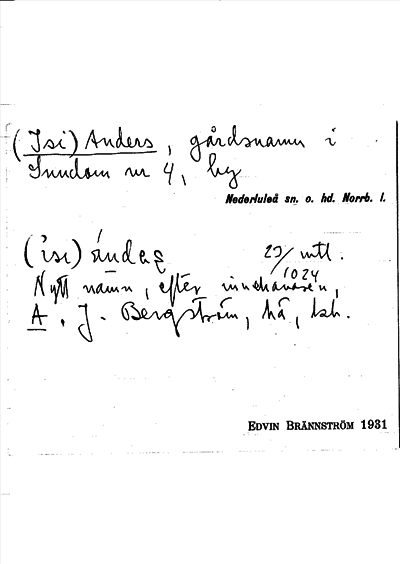 (Isi) Anders, gårdsnamn i
Sundom nr 4, by
Nederluleå sn. o. hd. Norrb. l.
(isi) ándaʂ 23/ mtl.
1024
Nytt namn, efter innehavaren,
A. J. Bergström, hå, lsk.
EDVIN BRÄNNSTRÖM 1931